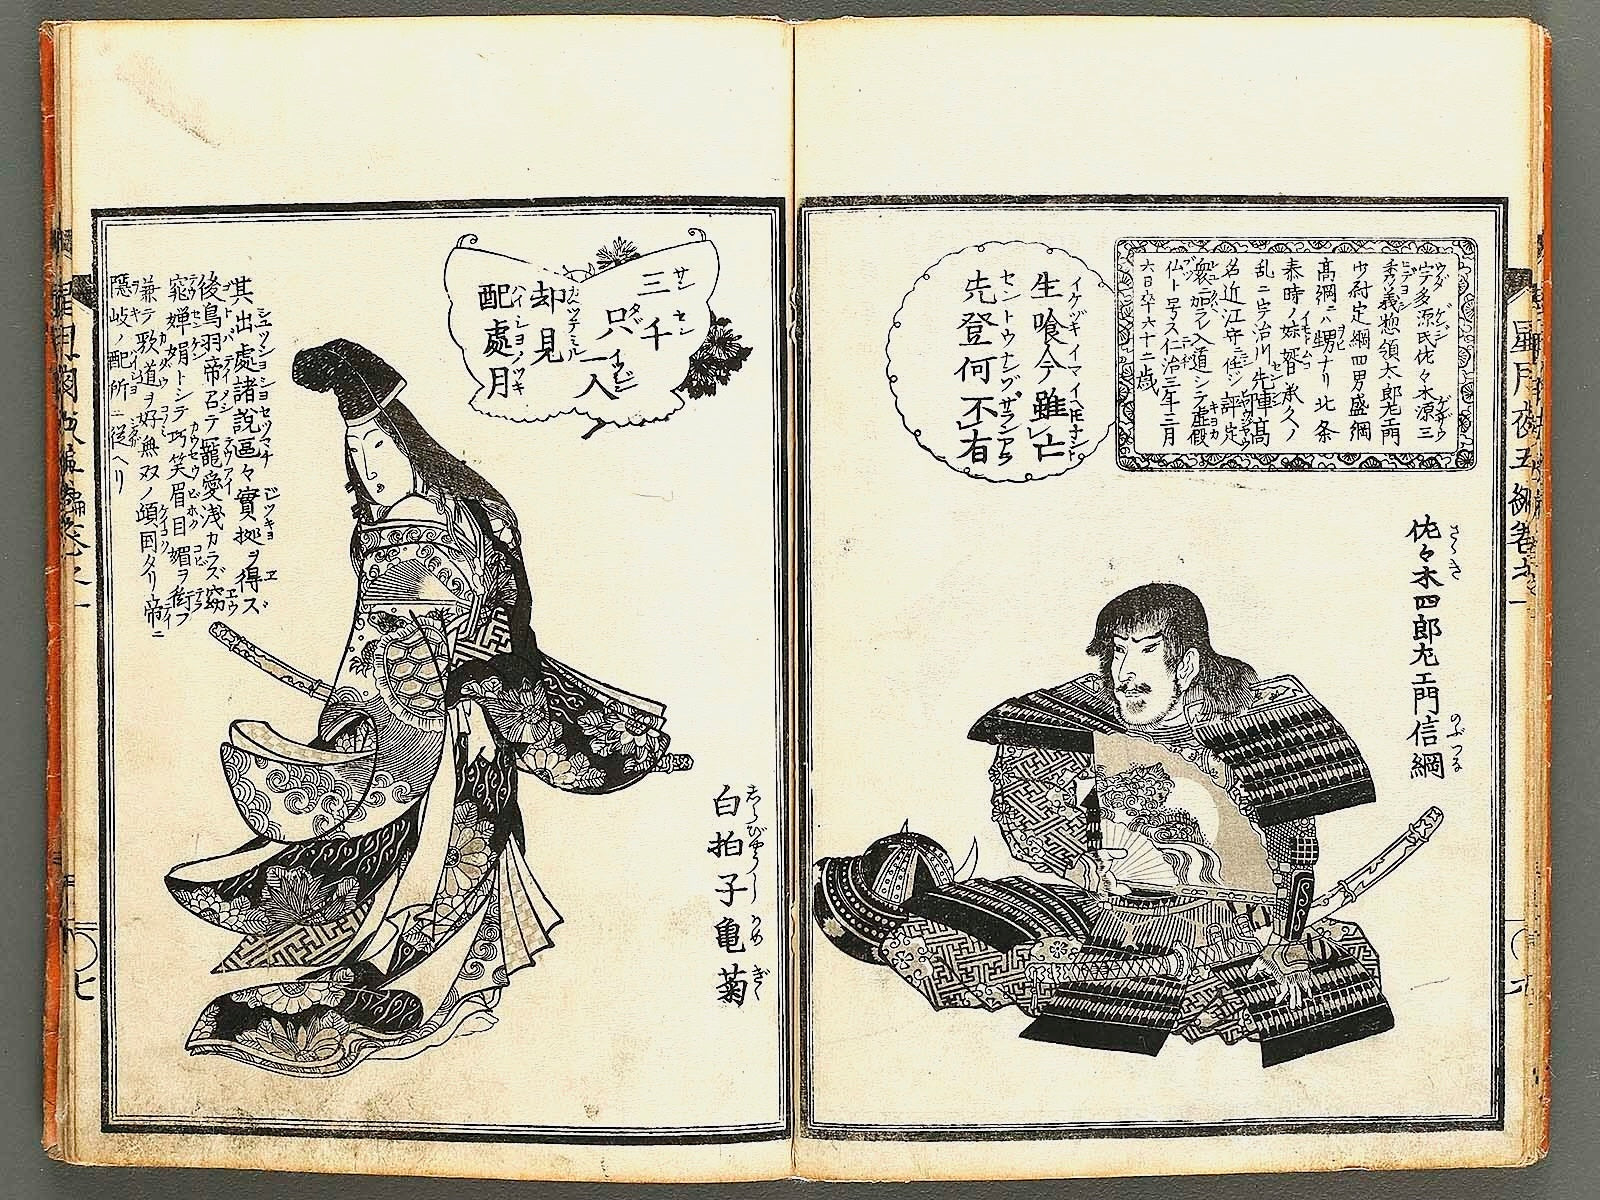 宇多源氏佐々木源三
秀義惣領太郎左エ門
少尉定綱四男盛綱
高綱ニハ甥ナリ北条
泰時ノ妹婿承久ノ
乱ニ宇治川ノ先陣高
名近江守ニ任ジ評定
衆ニ加ハル入道シテ虚假
仏ト号ス仁治三年三月
六日卒六十二歳
生喰今雖亡
先登何不有
佐々木四郎左エ門信綱
三千
只一人
却見
配處月
其出處諸説區々實拠ヲ得ズ
後鳥羽帝召テ寵愛浅カラズ窈
窕嬋娟トシテ巧笑眉目媚ヲ衒フ
兼テ歌道ヲ好無双ノ傾国タリ帝ニ
隠岐ノ配所ニ従ヘリ
白拍子亀菊